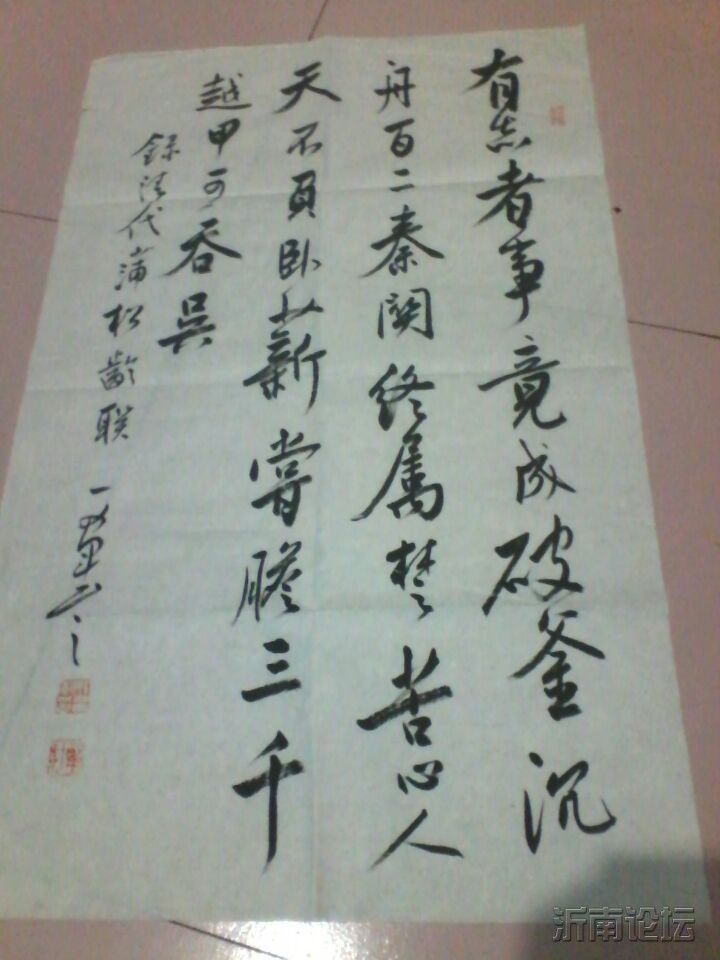 有志者事竟成破釜沉
舟百二秦関终属楚苦心人
天不負卧薪嘗膽三千
越甲可吞吴
録清代蒲松齡联
沂南论坛